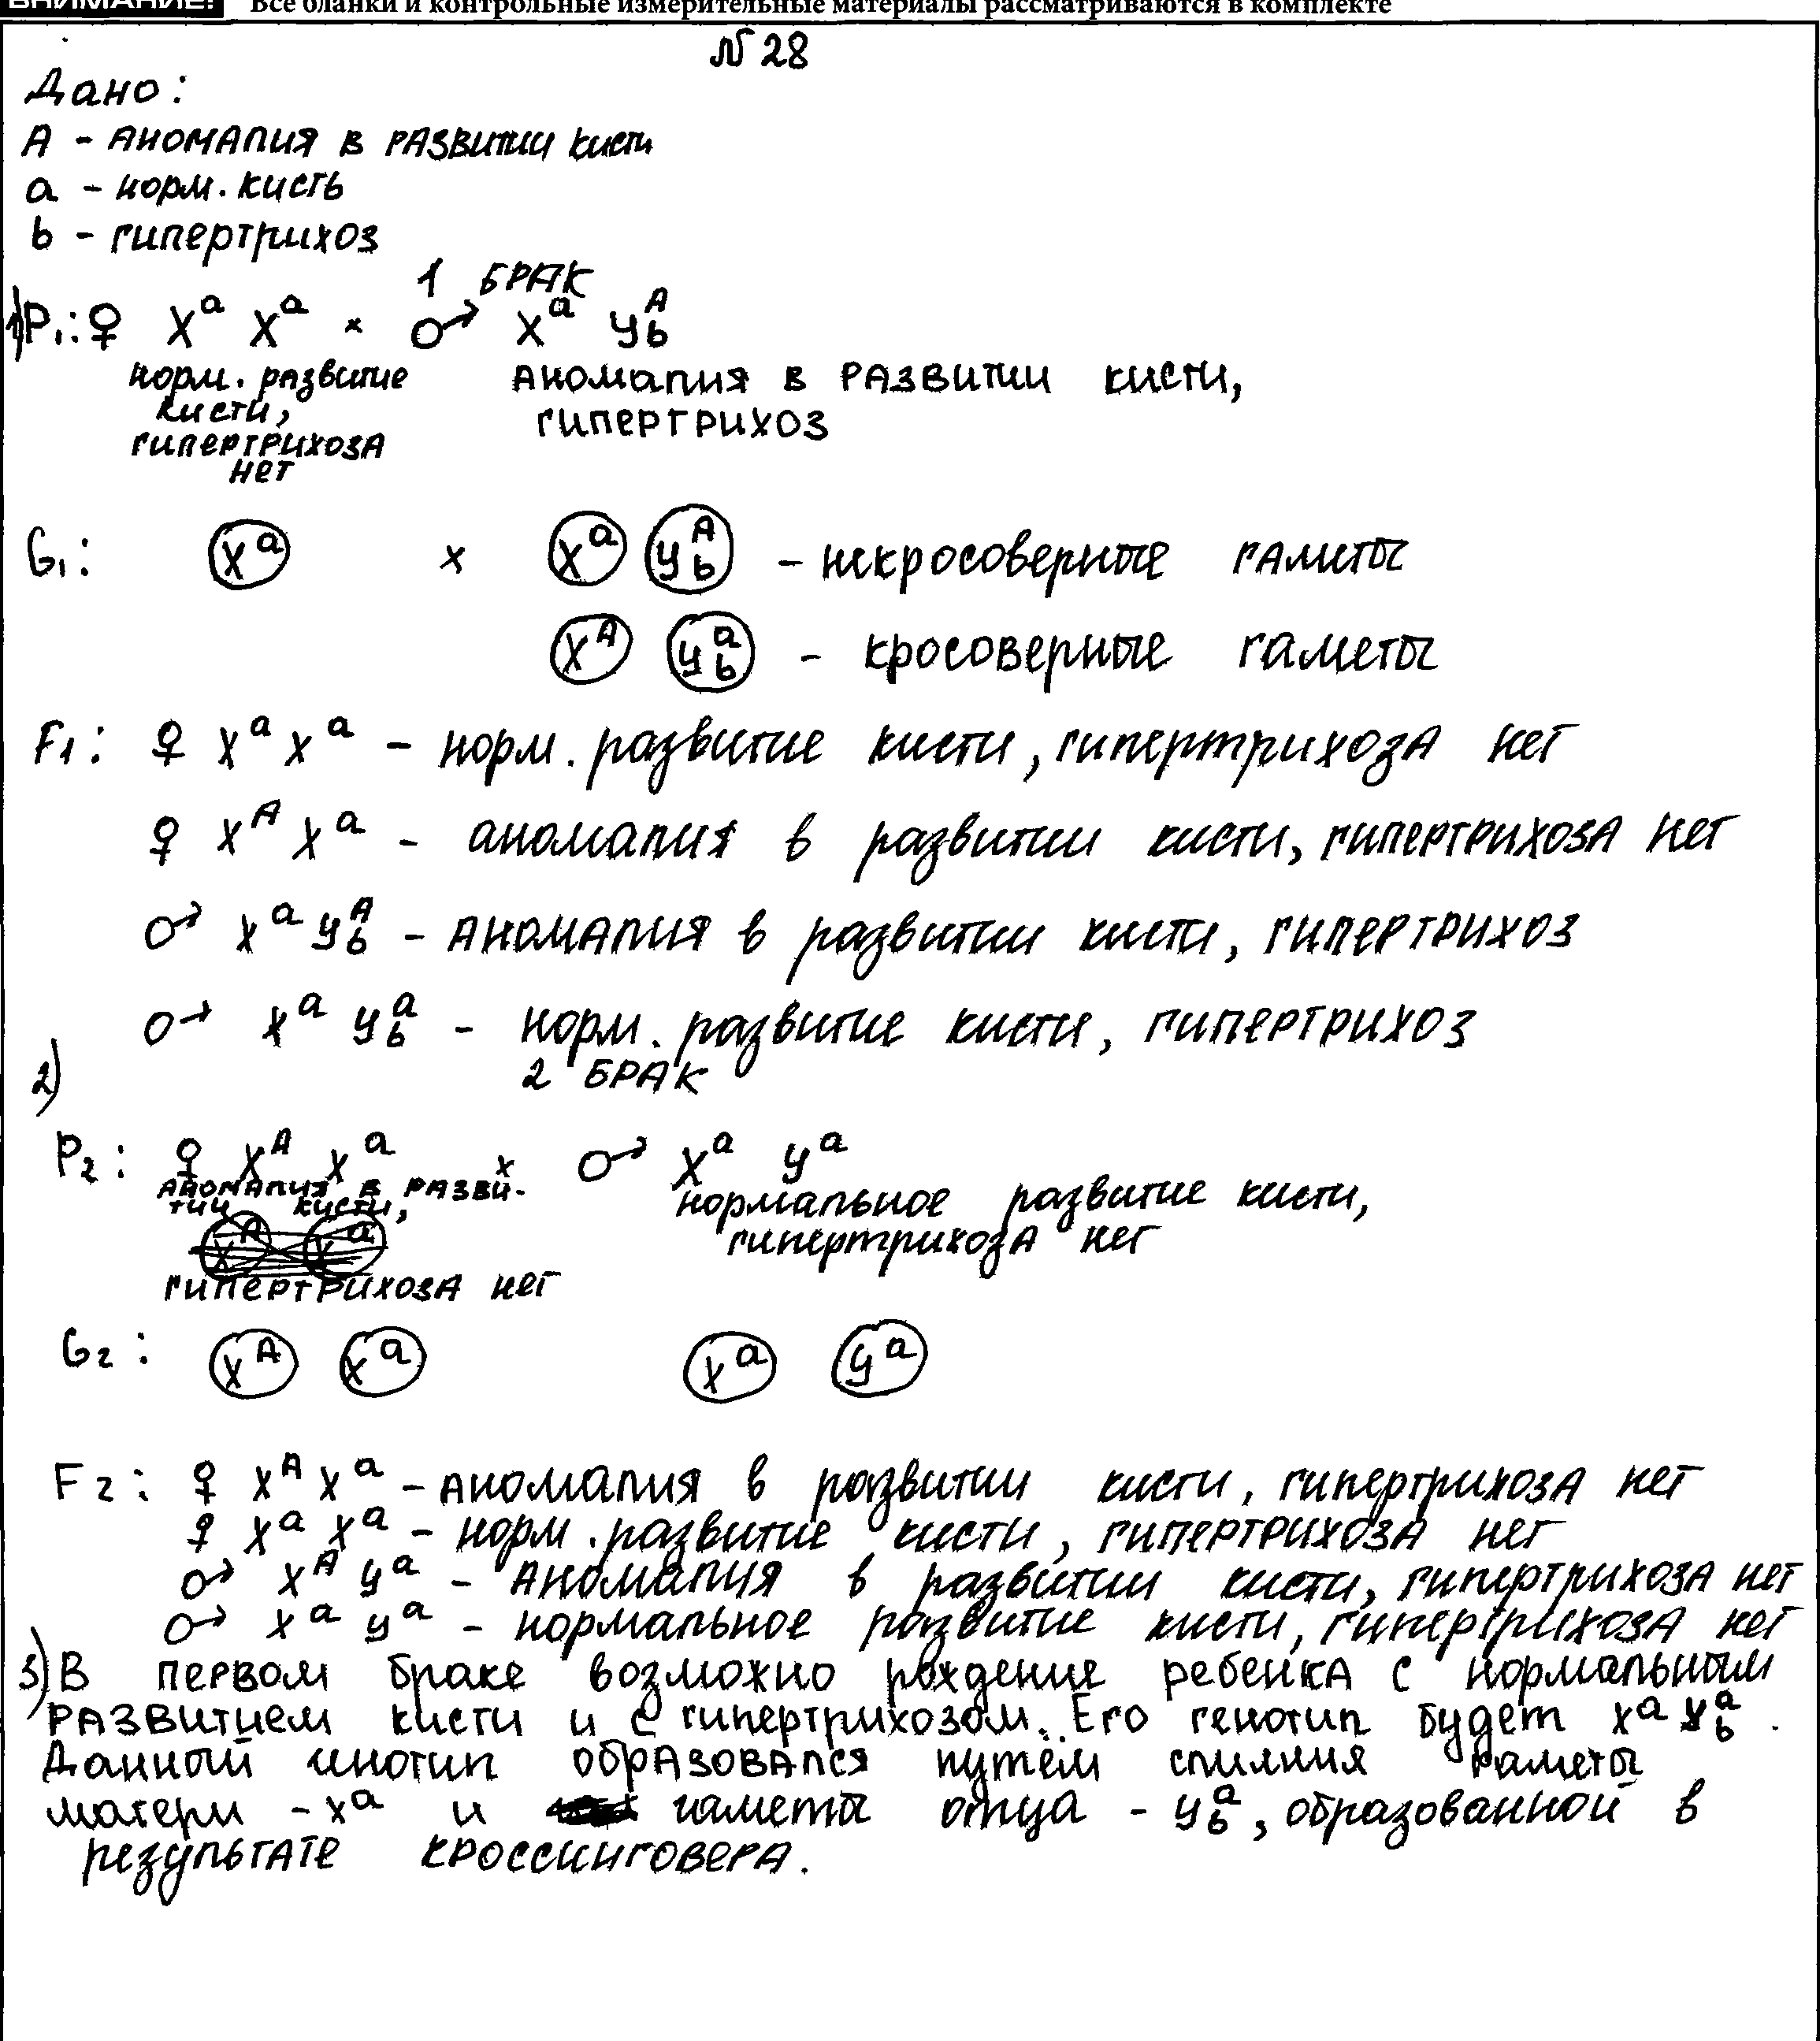 ВНИМАНИЕ! Все бланки и контрольные измерительные материалы рассматриваются в комплекте
№ 28
Дано:
A - аномалия в развитии кисти
a - норм. кисть
b - гипертрихоз
1 БРАК
1) P₁: ♀ Xᵃ Xᵃ × ♂ Xᵃ Yᴬb
норм. развитие кисти, гипертрихоза нет
аномалия в развитии кисти, гипертрихоз
G₁: Xᵃ × Xᵃ Yᴬb - некросоверные гаметы
Xᴬ Yᵃb - кросоверные гаметы
F₁: ♀ Xᵃ Xᵃ - норм. развитие кисти, гипертрихоза нет
♀ Xᴬ Xᵃ - аномалия в развитии кисти, гипертрихоза нет
♂ Xᵃ Yᴬb - аномалия в развитии кисти, гипертрихоз
♂ Xᵃ Yᵃb - норм. развитие кисти, гипертрихоз
2) 2 БРАК
P₂: ♀ Xᴬ Xᵃ × ♂ Xᵃ Yᵃ
аномалия в развитии кисти, гипертрихоза нет
нормальное развитие кисти,
гипертрихоза нет
G₂: Xᴬ Xᵃ Xᵃ Yᵃ
F₂: ♀ Xᴬ Xᵃ - аномалия в развитии кисти, гипертрихоза нет
♀ Xᵃ Xᵃ - норм. развитие кисти, гипертрихоза нет
♂ Xᴬ Yᵃ - аномалия в развитии кисти, гипертрихоза нет
♂ Xᵃ Yᵃ - нормальное развитие кисти, гипертрихоза нет
3) В первом браке возможно рождение ребенка с нормальным
развитием кисти и с гипертрихозом. Его генотип будет Xᵃ Yᵃb.
Данный инотип образовался путём слилния гаметы
матери - Xᵃ и гаметы отца - Yᵃb, образованной в
результате кроссинговера.